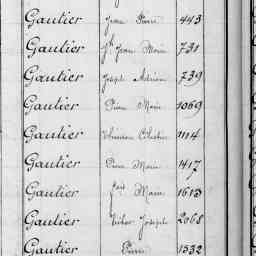 Gautier Jean Pierre 443
Gautier Jean Marie 731
Gautier Joseph Adrien 739
Gautier Pierre Marie 1069
Gautier Célestin 1114
Gautier Pierre Marie 1417
Gautier Marie 1613
Gautier Joseph 2068
Gautier Pierre 1332